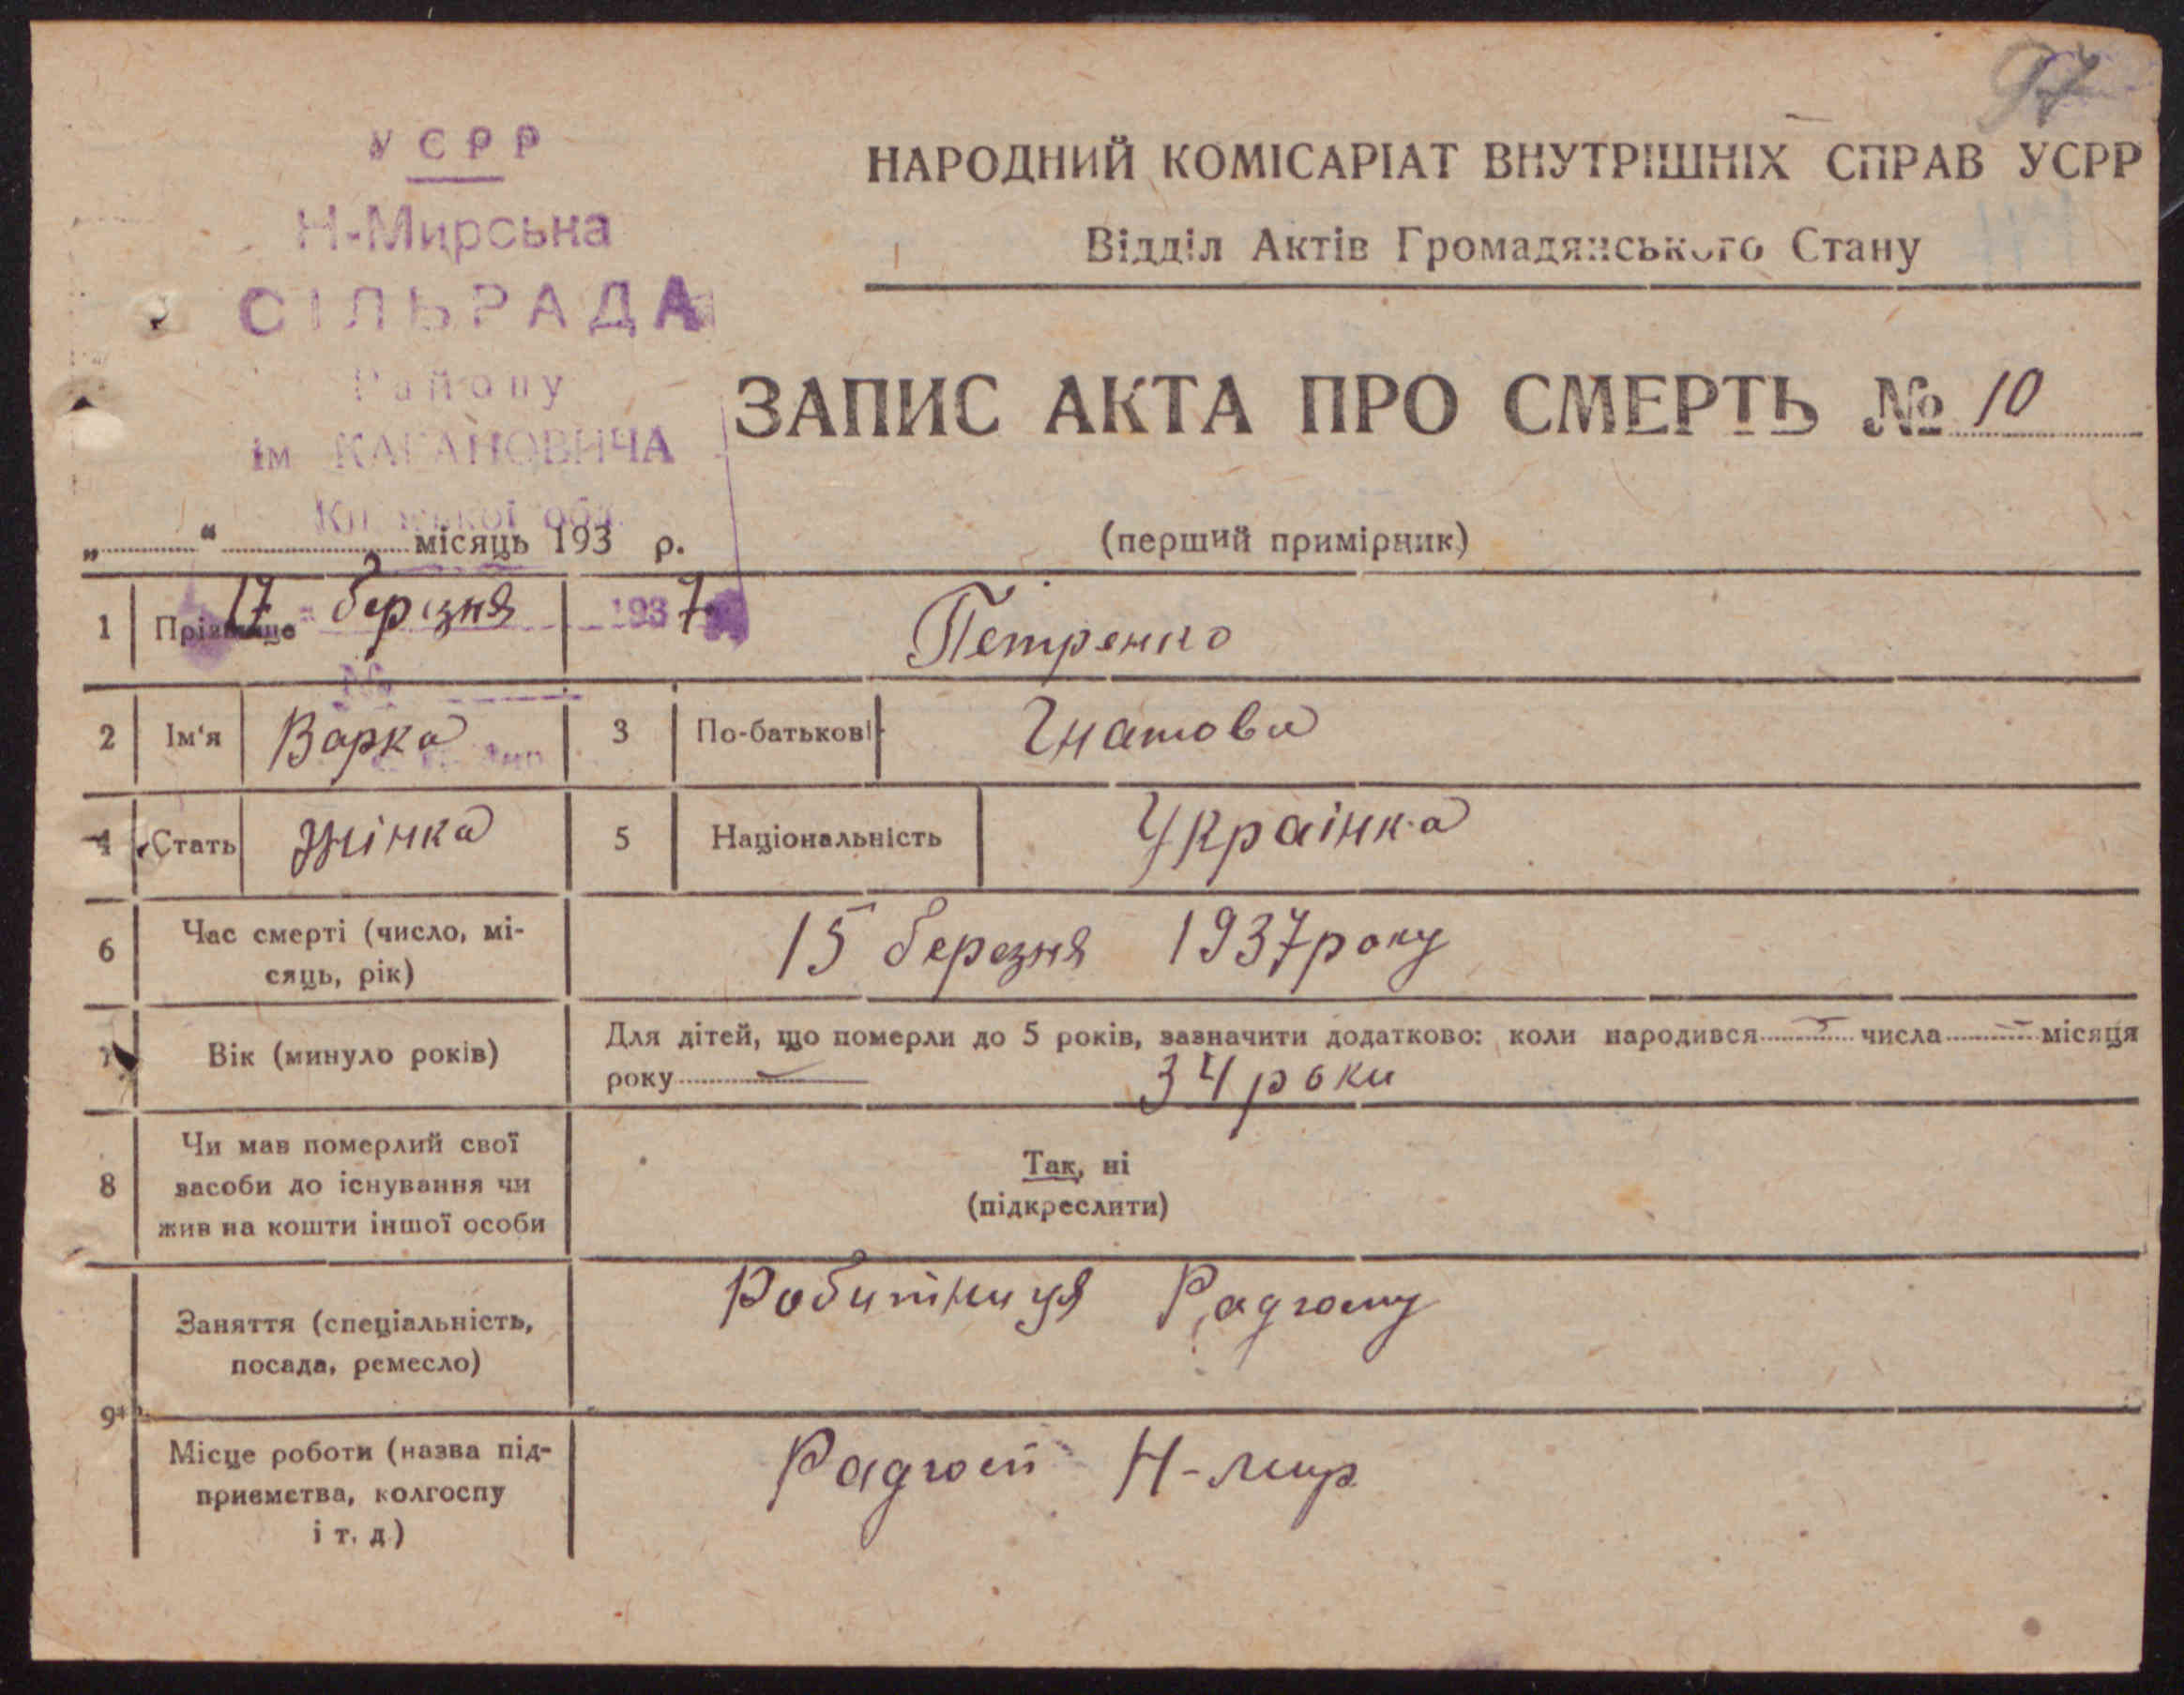 97
УСРР
Н-Мирська
СІЛЬРАДА
Району
ім КАГАНОВИЧА
Київської обл.
17 березня 1937
№
НАРОДНИЙ КОМІСАРІАТ ВНУТРІШНІХ СПРАВ УСРР
Відділ Актів Громадянського Стану
ЗАПИС АКТА ПРО СМЕРТЬ № 10
(перший примірник)
„ “ місяць 193 р.
1 Прізвище Петренко
2 Ім'я Варка 3 По-батькові Гнатова
4 Стать жінка 5 Національність Українка
6 Час смерті (число, мі-
сяць, рік) 15 березня 1937 року
7 Вік (минуло років) Для дітей, що померли до 5 років, зазначити додатково: коли народився – числа – місяця
року – 34 роки
8 Чи мав померлий свої
засоби до існування чи
жив на кошти іншої особи
Так, ні
(підкреслити)
9
Заняття (спеціальність,
посада, ремесло)
Робитниця Радгоспу
Місце роботи (назва під-
приємства, колгоспу
і т. д.)
Радгосп Н-мир